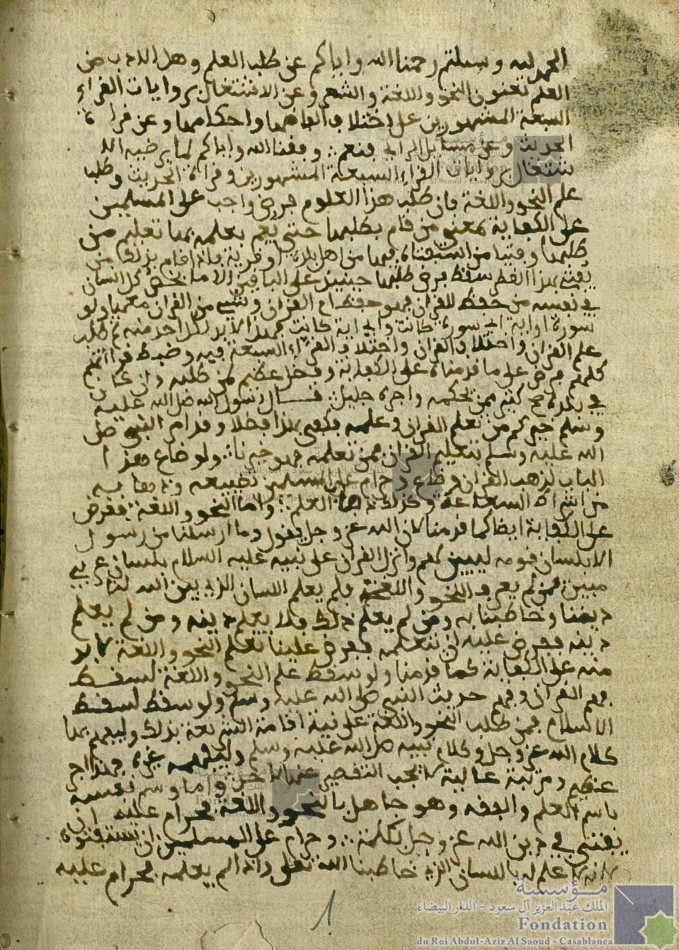 الحمد لله وسيلتم رحمنا الله واياكم عن طلب العلم وهل الادب من
العلم تعنون النحو واللغة والشعر وعن الاشتغال بروايات القراء
السبعة المشهورين على اختلاف الفاظها واحكامها وعن قراءة
الحديث وعن مسايل الراي فنعم وفقنا الله واياكم لما يرضيه الا
شتغال بروايات القراء السبعة المشهورين وقراة الحديث وطلب
علم النحو واللغة فان طلب هذا العلوم فرض واجب على المسلمين
على الكفاية بمعنى من قام بطلبها حتى يعم بعلمه بما تعليم من
طلبها وفتيا من استفتاه فيها من اهل بلده او قرية فاذا قام بذلك من
يقوم بهذا القطر سقط فرض طلبها حينئذ على الباقين الا ما يخص كل انسان
في نفسه من حفظ للقران فهو حفظ ام القران وشيء من القران معها ولو
سورة او اية اي سورة كانت واي اية كانت فهذا لا بد لكل احد منه ثم طلب
علم القران واختلاف القران واختلاف القراء السبعة فيه وضبط قراءتهم
كلهم فرض على ما قدمناه على الكفاية وفضل عظيم لمن طلبه وان كان
في بلده كثير ممن يحكمه واجره جليل قال رسول الله صلى الله عليه
وسلم خيركم من تعلم القران وعلمه فكفى بهذا فضلا وقد امر النبي صلى
الله عليه وسلم بتعليم القران فمن تعلمه فهو خيرنا ولو ضاع هذا
الباب لذهب القران وضاع وحرام على المسلمين تضييعه وذهابه
من اشراط الساعة وكذلك ذهاب العلم واما النحو واللغة ففرض
على الكفاية ايضا كما قدمنا لان الله عز وجل يقول وما ارسلنا من رسول
الا بلسان قومه ليبين لهم وانزل القران على نبيه عليه السلام بلسان عربي
مبين فمن لم يعرف النحو واللغة فلم يعلم اللسان الذي بين الله لنا
ديننا وخاطبنا به ومن لم يعلم ذلك فلا يعلم دينه ومن لم يعلم
دينه ففرض عليه ان يتعلمه ففرض علينا تعلم النحو واللغة لا بد
منه على الكفاية كما قدمنا ولو سقط علم النحو واللغة لسقط
فهم القران وفهم حديث النبي صلى الله عليه وسلم ولو سقط لسقط
الاسلام فمن طلب النحو واللغة على نية اقامة الشريعة بذلك وليفهم بها
كلام الله عز وجل وكلام نبيه صلى الله عليه وسلم وليفهمه غيره فهذا اجر
عظيم ومرتبة عالية لا يجب التقصير عنها لاحد واما من وسم نفسه
باسم العلم والفقه وهو جاهل بالنحو واللغة فحرام عليه ان
يفتي في دين الله عز وجل بكلمة وحرام على المسلمين ان يستفتوه
لانه لا علم له باللسان الذي خاطبنا الله تعلى واذا لم يعلمه فحرام عليه
1
مؤسسة
الملك عبد العزيز آل سعود - الدار البيضاء
Fondation
du Roi Abdul-Aziz Al Saoud - Casablanca